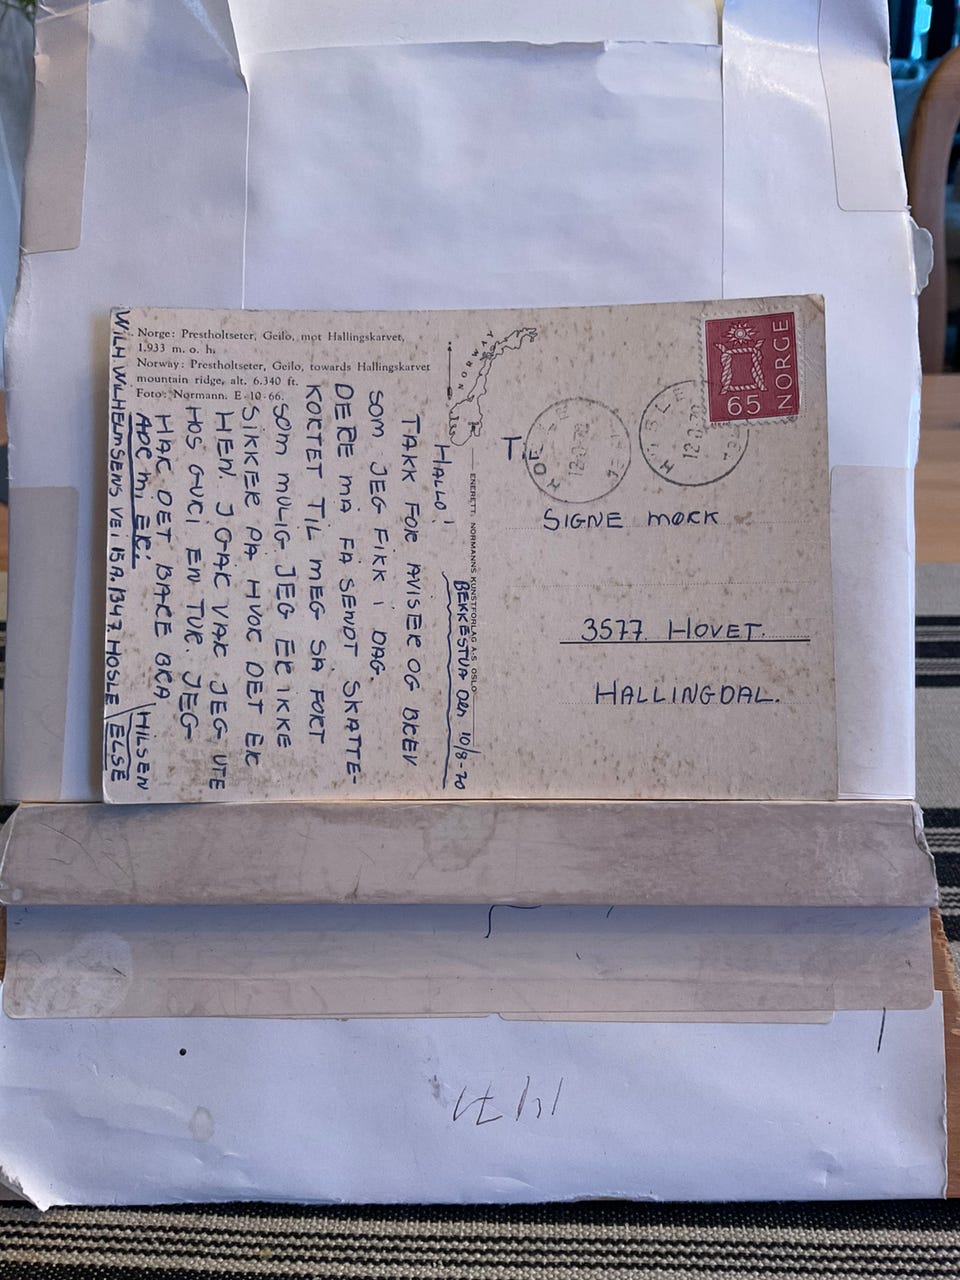 Norge: Prestholtseter, Geilo, mot Hallingskarvet,
1.933 m. o. h.
Norway: Prestholtseter, Geilo, towards Hallingskarvet
mountain ridge, alt. 6.340 ft.
Foto: Normann. E-10-66.
NORWAY
ENERETT: NORMANNS KUNSTFORLAG A·S OSLO
BEKKESTUA DEN 10/8-70
HALLO!
TAKK FOR AVISER OG BREV
SOM JEG FIKK I DAG.
DERE MÅ FÅ SENDT SKATTE-
KORTET TIL MEG SÅ FORT
SOM MULIG. JEG ER IKKE
SIKKER PÅ HVOR DET ER
HEN. I GÅR VAR JEG UTE
HOS GURI EN TUR. JEG
HAR DET BARE BRA
HILSEN
ELSE
ADR. MI ER:
WILH. WILHELMSENS VEI 15 A. 1347. HOSLE
NORGE
65
HOSLE
12.8.70
HOSLE
12.8.70
T
SIGNE MØRK
3577 HOVET.
HALLINGDAL.